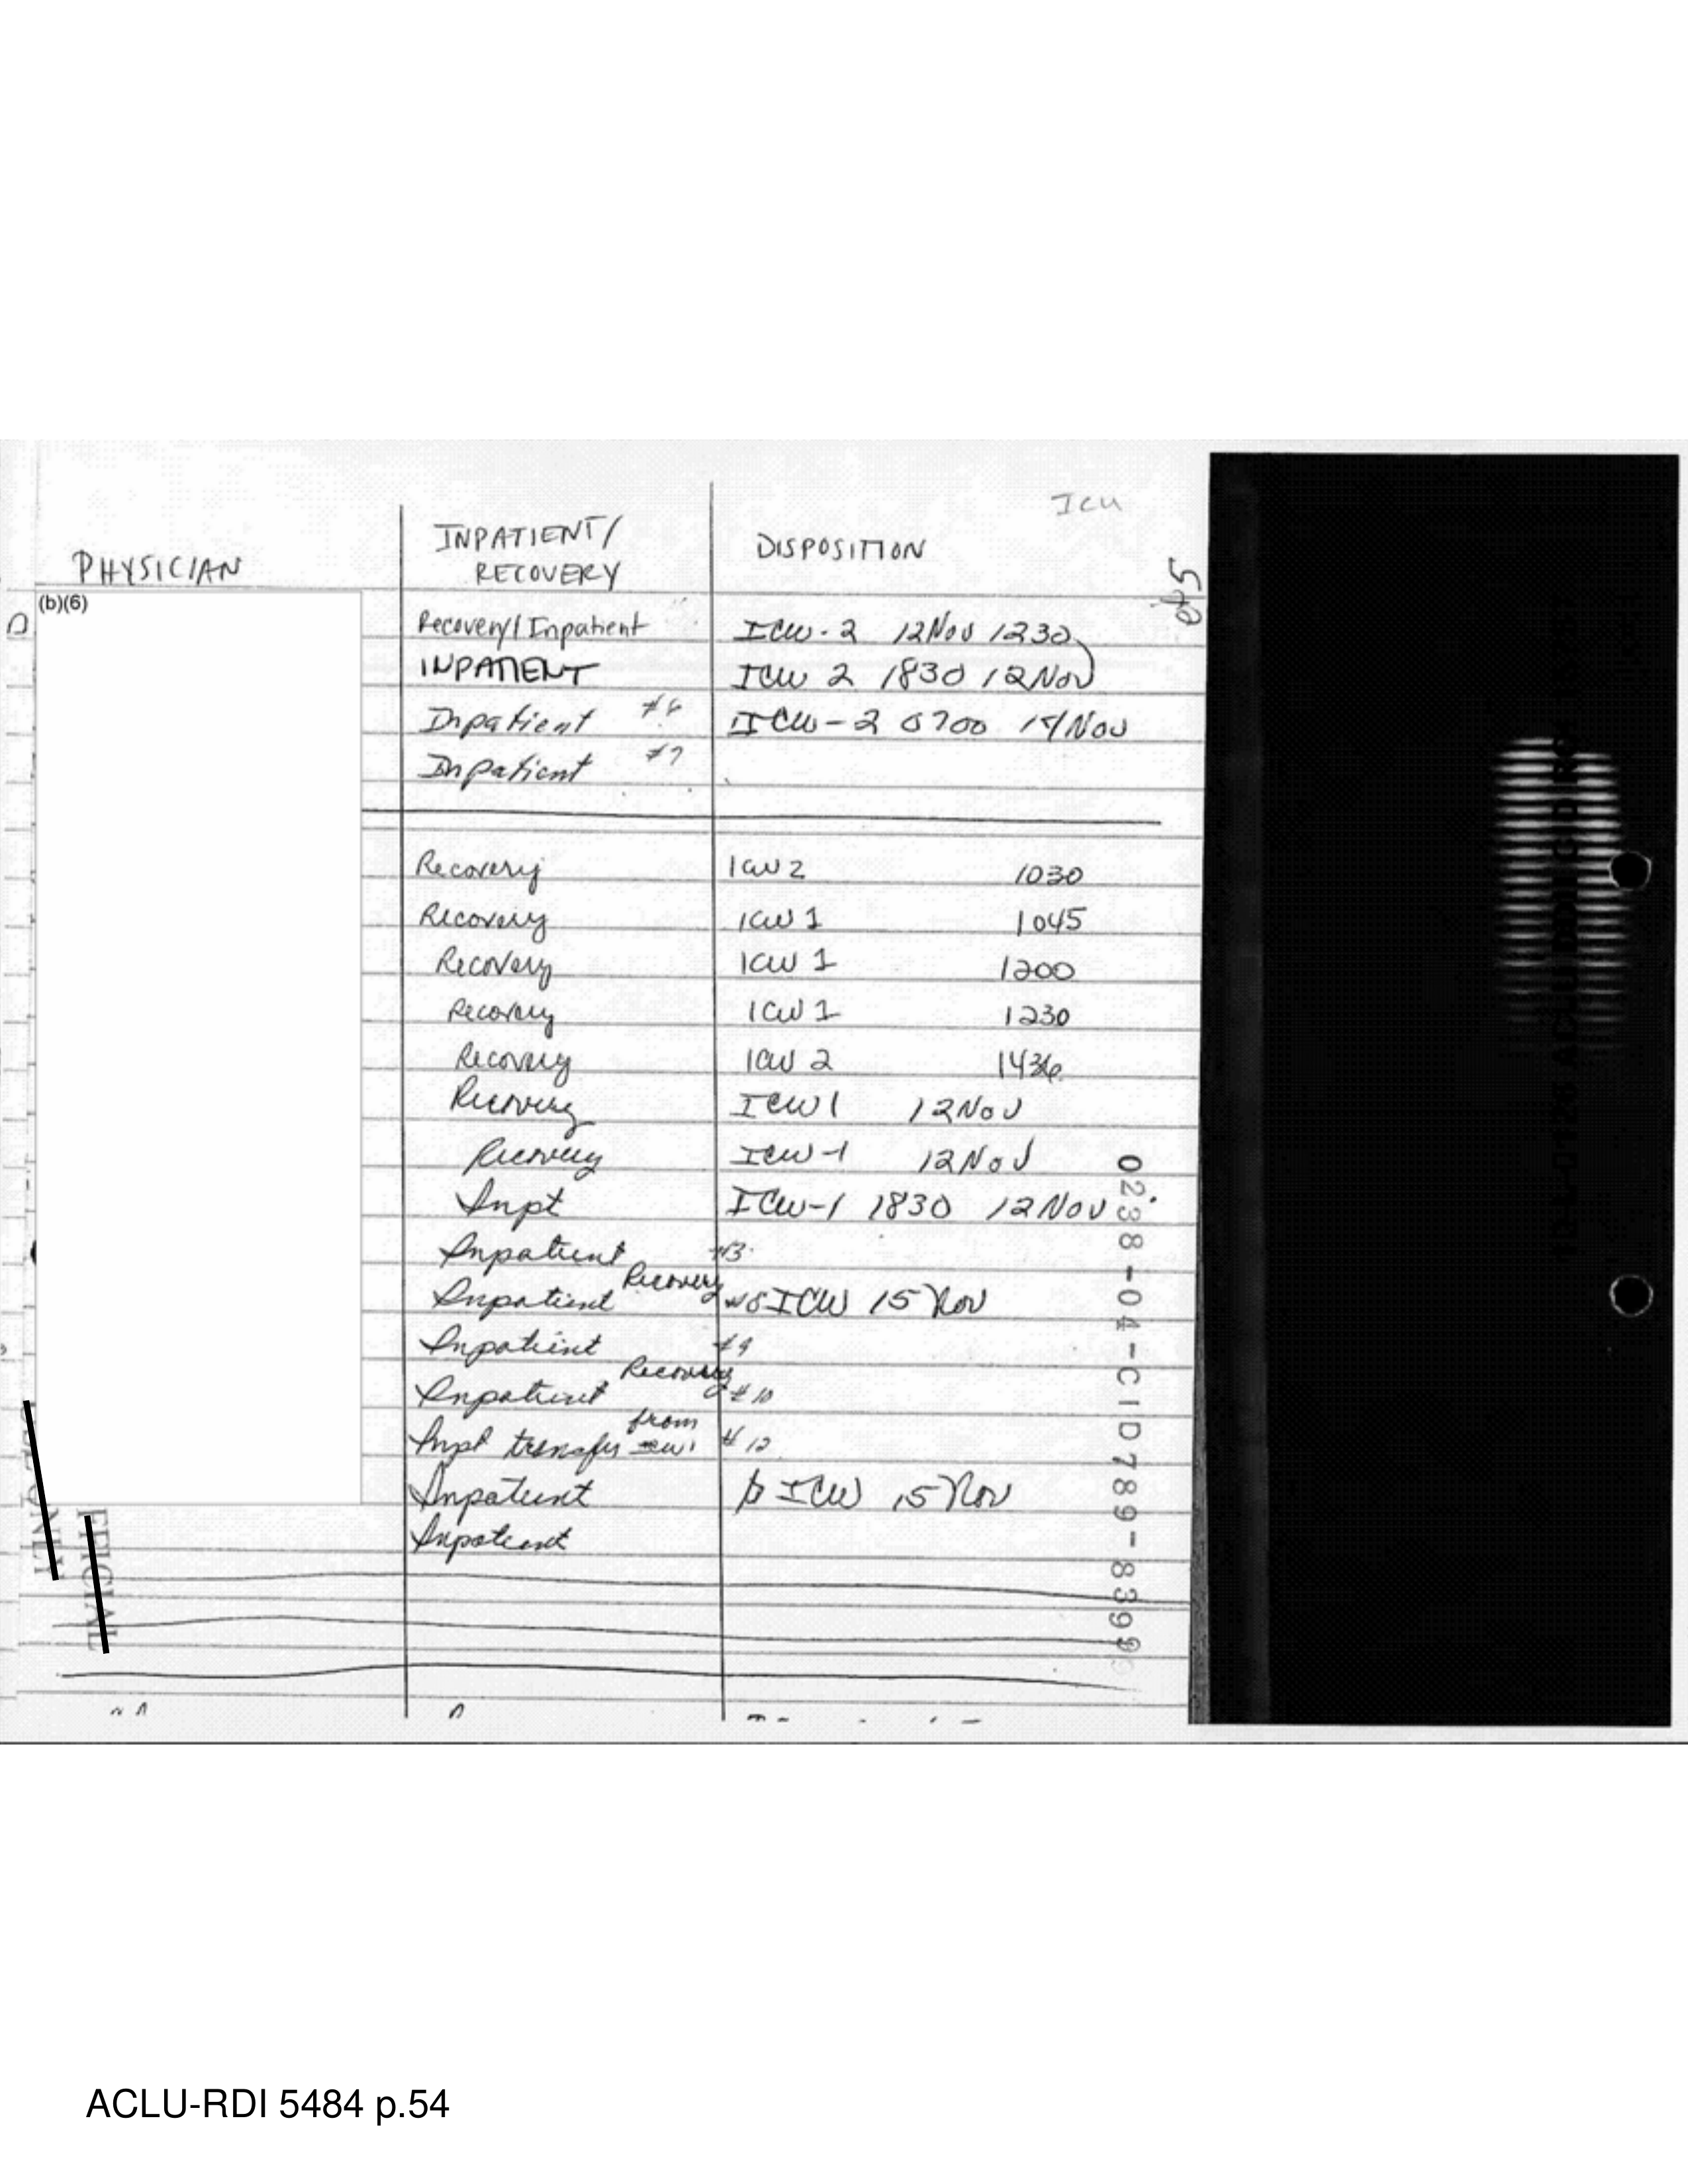 ICU
PHYSICIAN INPATIENT/ RECOVERY DISPOSITION
(b)(6)
Recovery/Inpatient ICW-2 12Nov 1230
INPATIENT ICW 2 1830 12Nov
Inpatient #6 ICW-2 0700 14/Nov
Inpatient #7
Recovery ICW 2 1030
Recovery ICW 1 1045
Recovery ICW 1 1200
Recovery ICW 1 1230
Recovery ICW 2
Recovery ICW 1 12Nov
Recovery ICW-1 12Nov
Inpt ICW-1 1830 12Nov
Inpatient #3
Inpatient Recovery #8 ICW 15 Nov
Inpatient #9
Inpatient Recovery #10
Inpt transfer from ICW1 #12
Inpatient ICW 15 Nov
Inpatient
0238-04-CID789-83999
ACLU-RDI 5484 p.54